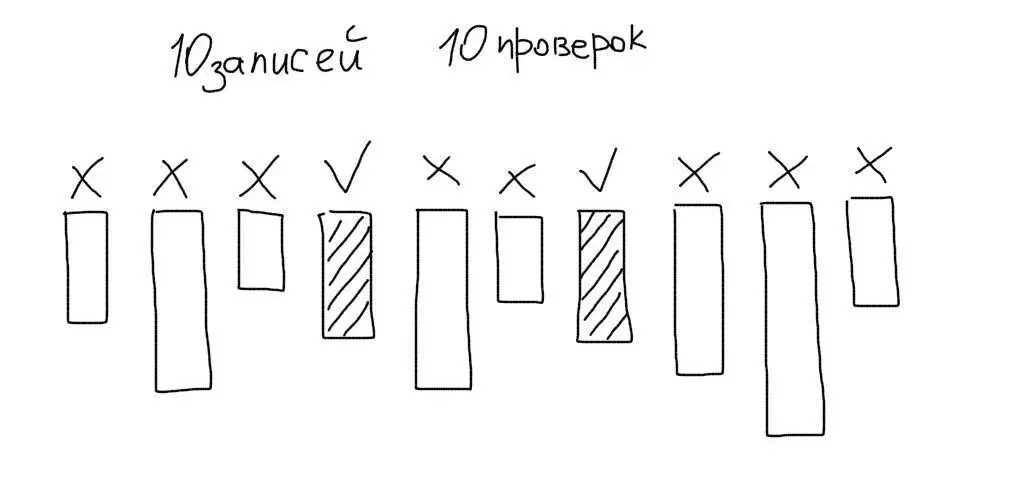 10 записей 10 проверок